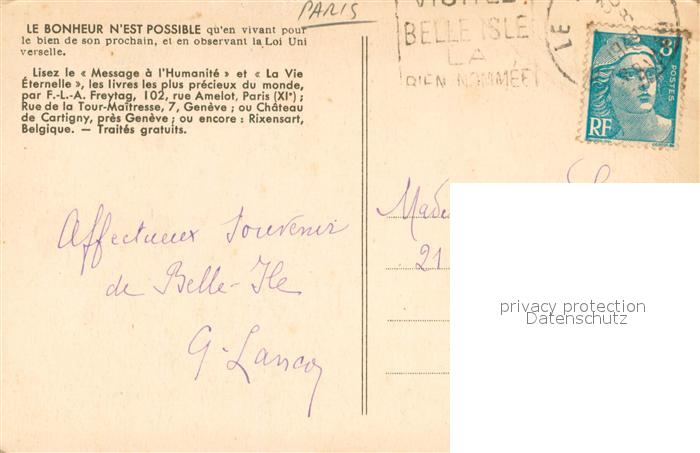 PARIS
LE BONHEUR N'EST POSSIBLE qu'en vivant pour
le bien de son prochain, et en observant la Loi Uni
verselle.
Lisez le « Message à l'Humanité » et « La Vie
Éternelle », les livres les plus précieux du monde,
par F.-L.-A. Freytag, 102, rue Amelot, Paris (XIe) ;
Rue de la Tour-Maîtresse, 7, Genève ; ou Château
de Cartigny, près Genève ; ou encore : Rixensart,
Belgique. — Traités gratuits.
VISITEZ
BELLE ISLE
LA
BIEN NOMMÉE
LE
8
POSTES
RF
Affectueux souvenir
de Belle-Ile
21
privacy protection
Datenschutz